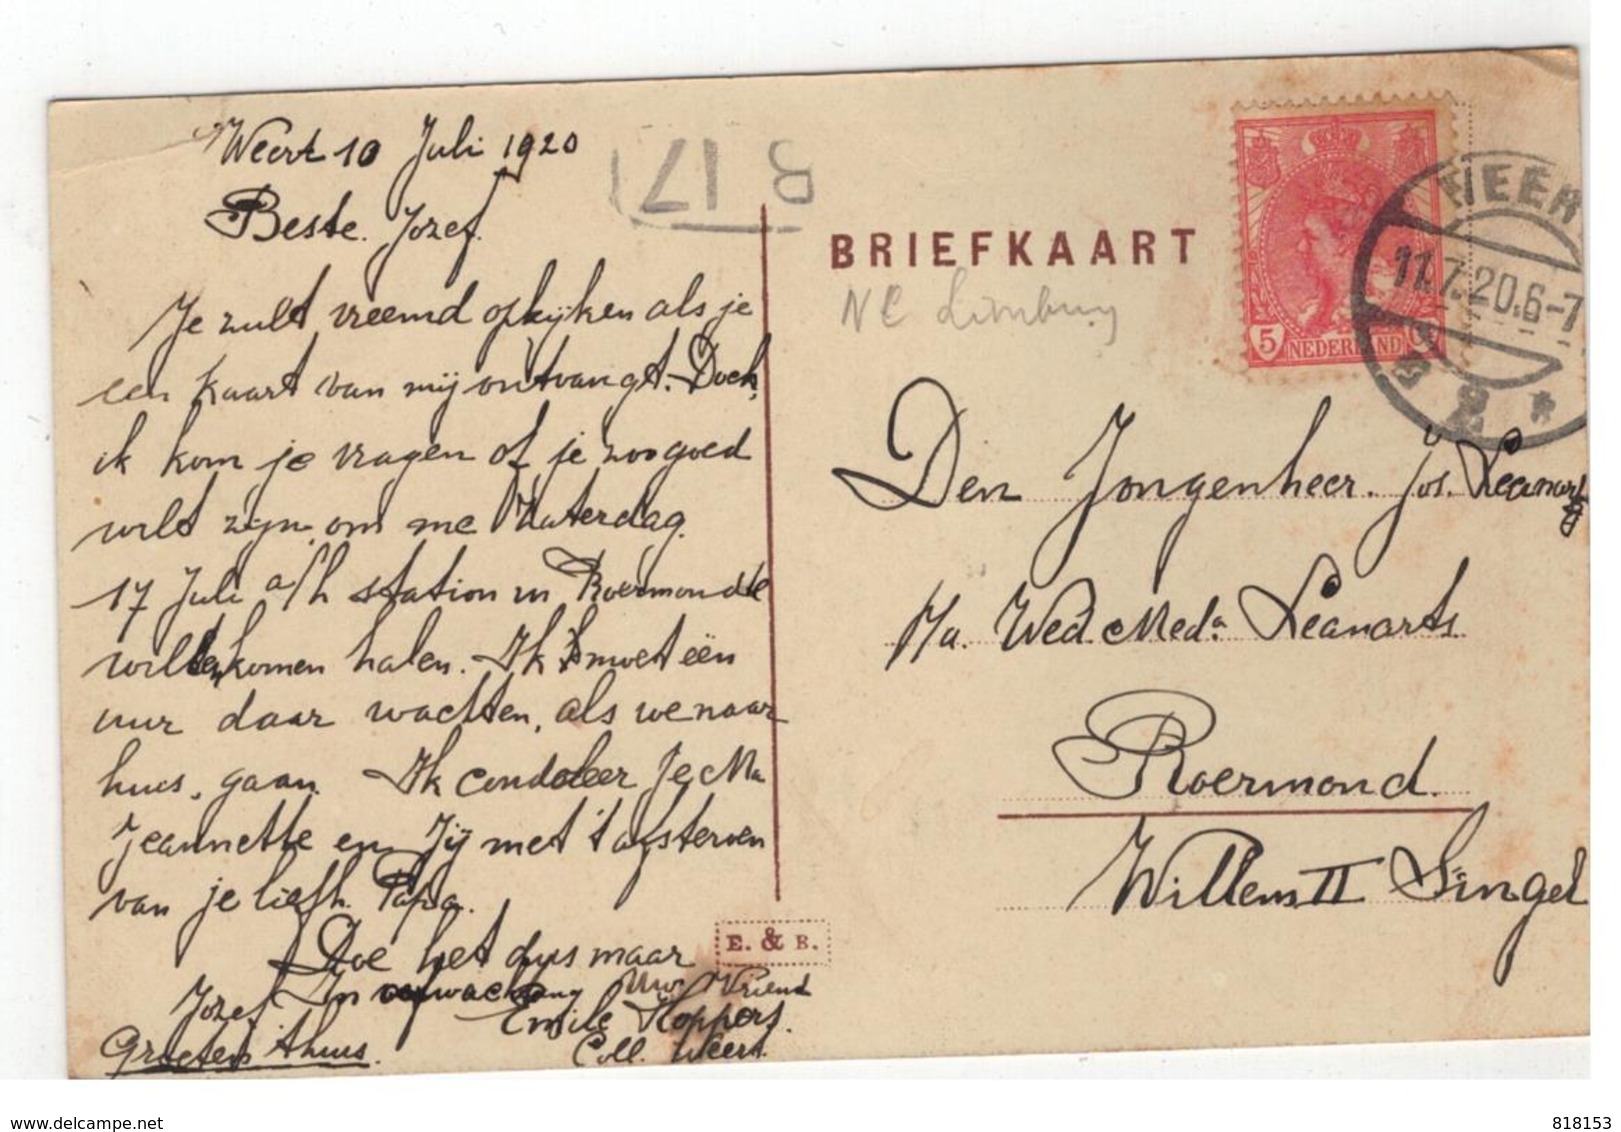 Weert 10 Juli 1920
Beste Jozef.
Je zult vreemd opkijken als je
een kaart van mij ontvangt. Doch,
ik kom je vragen of je zoo goed
wilt zijn om me Zaterdag
17 Juli a/h station in Roermond te
willen komen halen. Ik moet één
uur daar wachten, als we naar
huis, gaan. Ik condoleer Je, Ma
Jeannette en Jij met 't afsterven
van je liefh. Papa.
Doe het dus maar
Jozef In verwachting Uw Vriend
Emile Hoppers.
Groeten thuis. Coll. Weert.
B 17
BRIEFKAART
NL Limburg
5 NEDERLAND
WEERT
11.7.20.6-7
2
Den Jongenheer. Jos. Leanarts
p/a. Wed. Meda. Leanarts
Roermond.
Willem II Singel
E. & B.
www.delcampe.net
818153